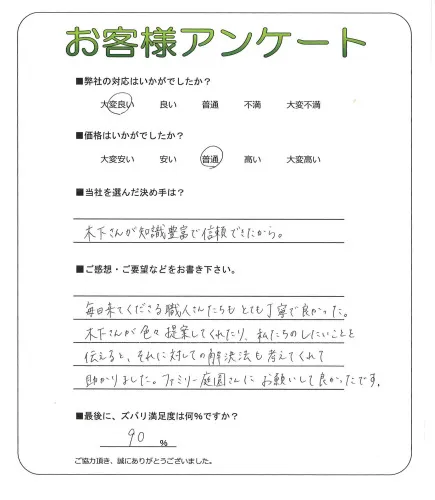 お客様アンケート
■弊社の対応はいかがでしたか？
大変良い 良い 普通 不満 大変不満
■価格はいかがでしたか？
大変安い 安い 普通 高い 大変高い
■当社を選んだ決め手は？
木下さんが知識豊富で信頼できたから。
■ご感想・ご要望などをお書き下さい。
毎日来てくださる職人さんたちもとても丁寧で良かった。
木下さんが色々提案してくれたり、私たちのしたいことを
伝えると、それに対しての解決法も考えてくれて
助かりました。ファミリー庭園さんにお願いして良かったです。
■最後に、ズバリ満足度は何％ですか？
90 ％
ご協力頂き、誠にありがとうございました。